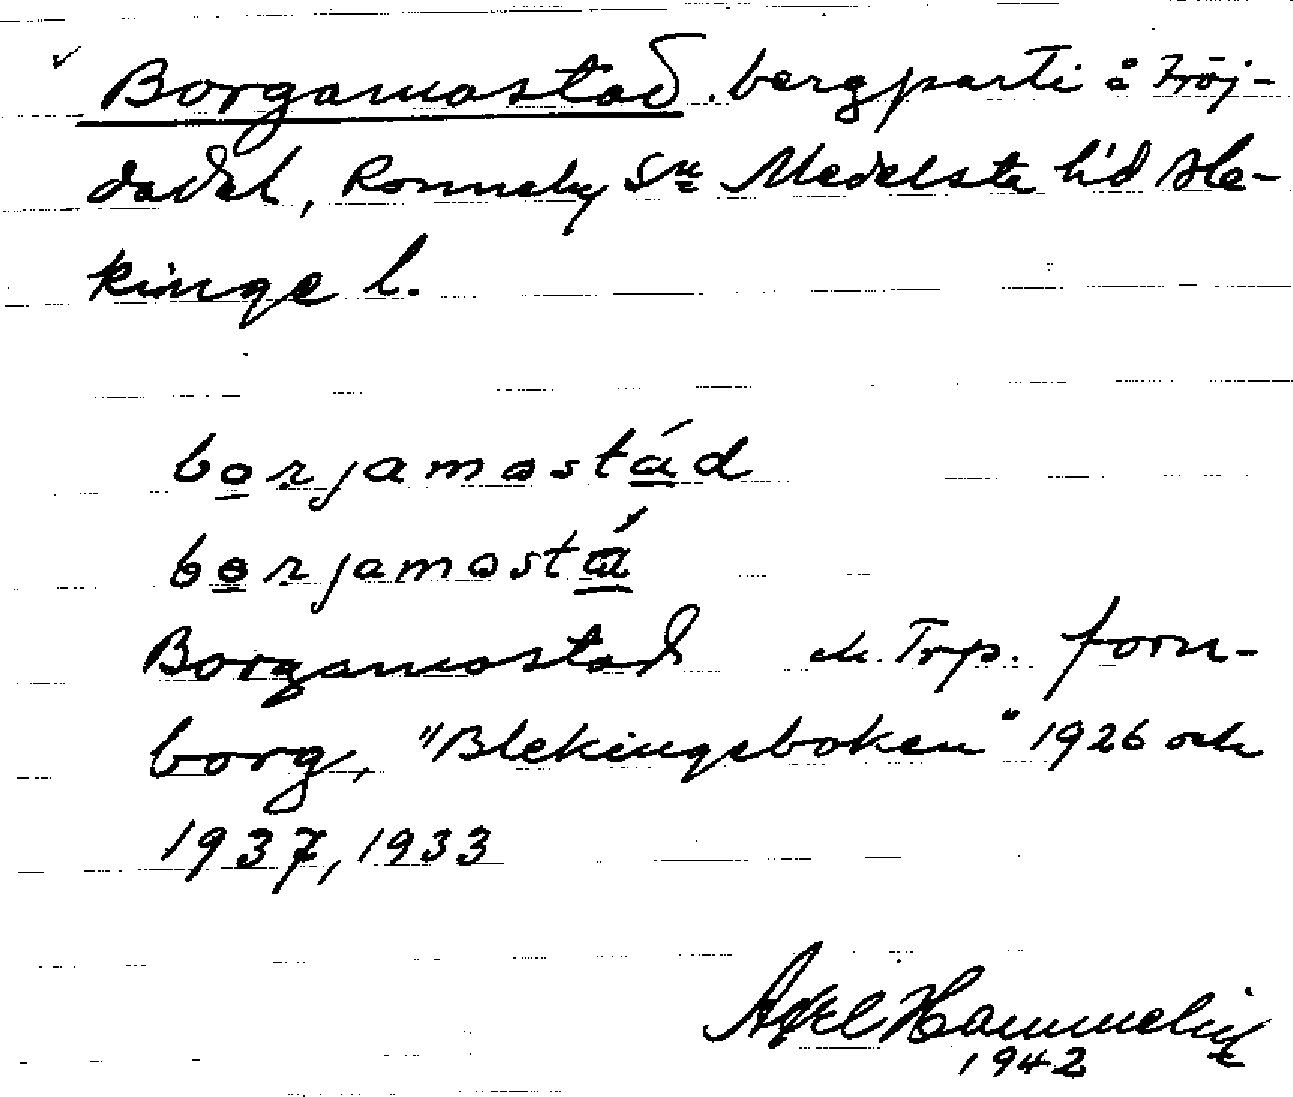 Borgamostad. bergparti å Fröj-
dadal, Ronneby Sn Medelsta h'd Ble-
kinge l.
borjamostád
borjamostá
Borgamostad Trp. forn-
borg, "Blekingeboken" 1926 och
1937, 1933
Axel Hammelin
1942